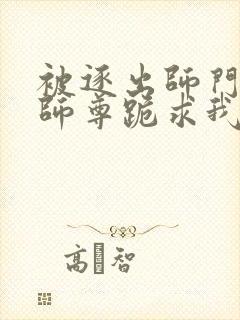 被逐出師門
師尊跪求我
高 智